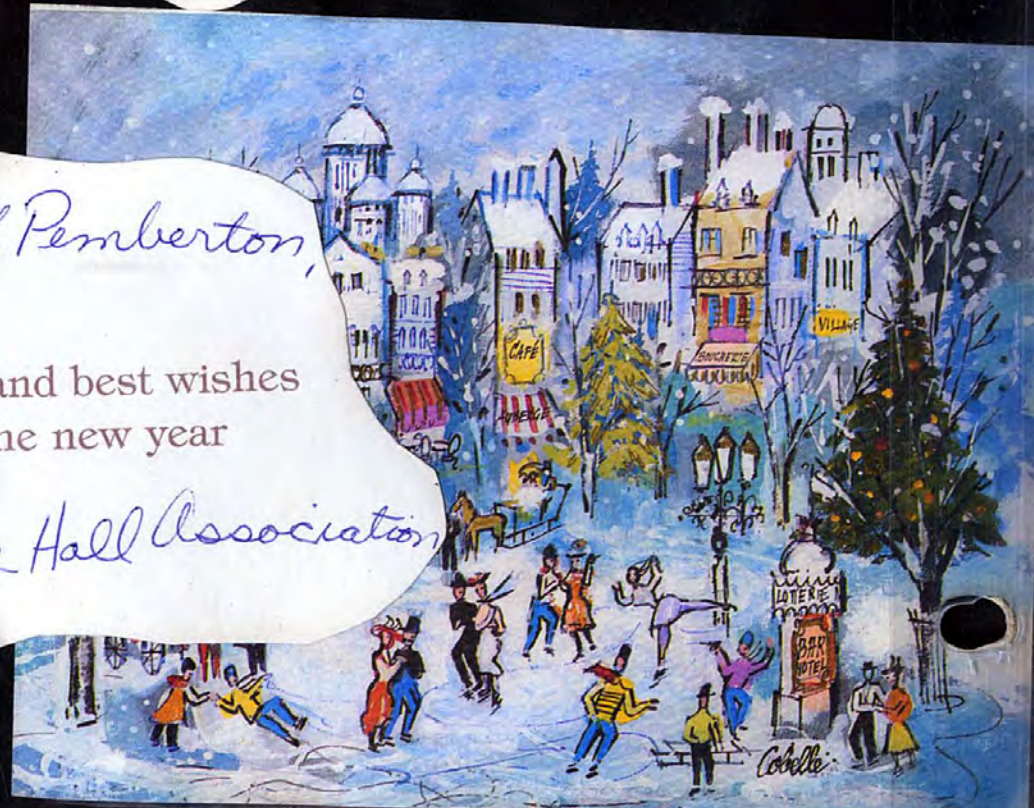 Pemberton,
and best wishes
new year
Hall Association
CAFÉ
AUBERGE
BOUCHERIE
VILLAGE
LOTTERIE
BAR
HOTEL
Cobelle